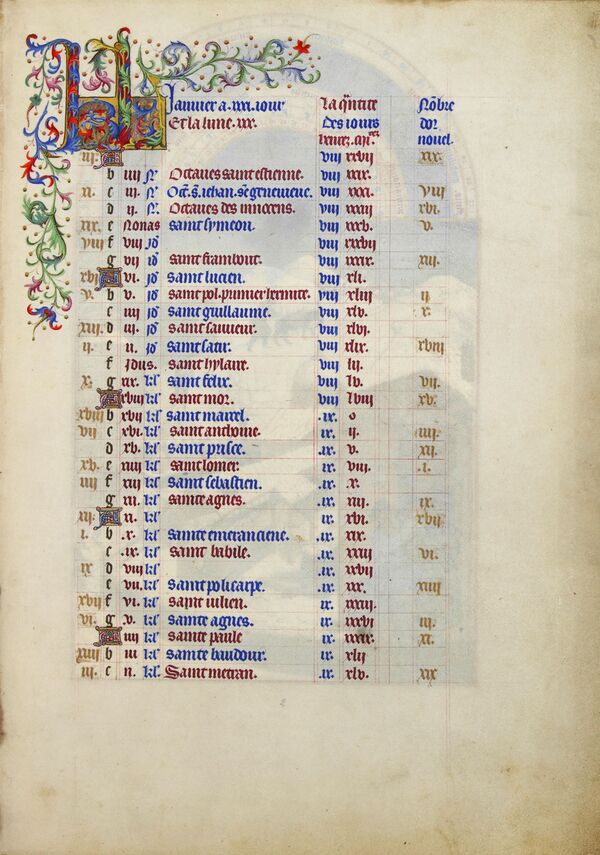 Januier a .xxxi. iour La q̃ntite Nõbre
Et la lune .xxx. des iours dor
nouel.
iii. A viii xxvii xix.
b iiii N̄ Octaues saint estienne. viii xxix.
xi. c iii. N̄ Oct̃. s. iehan. ste geneuieue. viii xxxi. viii
d ii N̄ Octaues des innocens. viii xxxiii xvi.
xix. e Nonas saint symeon. viii xxxv. v.
viii f viii id̄ viii xxxvii
g vii id̄ saint frambout. viii xxxix. xiii.
xvi A vi. id̄ saint lucien. viii xli. ii
v. b v. id̄ saint pol. premier hermite. viii xliii
c iiii id̄ saint guillaume. viii xlv. x.
xiii. d iii. id̄ saint sauueur. viii xlvi.
ii. e ii. id̄ saint satir. viii xlix. xviii
f Idus. saint hylaire. viii lii.
x. g xix. kl̄ saint felix. viii lv. vii.
A xviii kl̄ saint mor. viii lviii xv.
xviii b xvii kl̄ saint marcel. .ix. o
vii c xvi. kl̄ saint anthoine. ix. ii. iiii.
d xv. kl̄ saint prisce. ix. v. xii.
xv. e xiiii kl̄ saint lomer. ix. viii. .i.
iiii f xiii kl̄ saint sebastien. ix. x.
g xii. kl̄ sainte agnes. ix. xiii. ix.
xii. A xi. kl̄ ix. xvi. xvii
i. b .x. kl̄ sainte emeranciene. .ix. xix.
c .ix. kl̄ saint babile. .ix. xxiii vi.
ix d viii kl̄ ix. xxvii
e vii. kl̄ saint policarpe. ix. xxx. xiiii
xvii f vi. kl̄ saint iulien. ix. xxxiii. iii.
vi. g .v. kl̄ sainte agnes. ix. xxxvi
A iiii kl̄ sainte paule ix. xxxix. xi.
xiiii b iii kl̄ sainte baudour. ix. xlii
iii. c ii. kl̄ Saint metran. .ix. xlv. xix